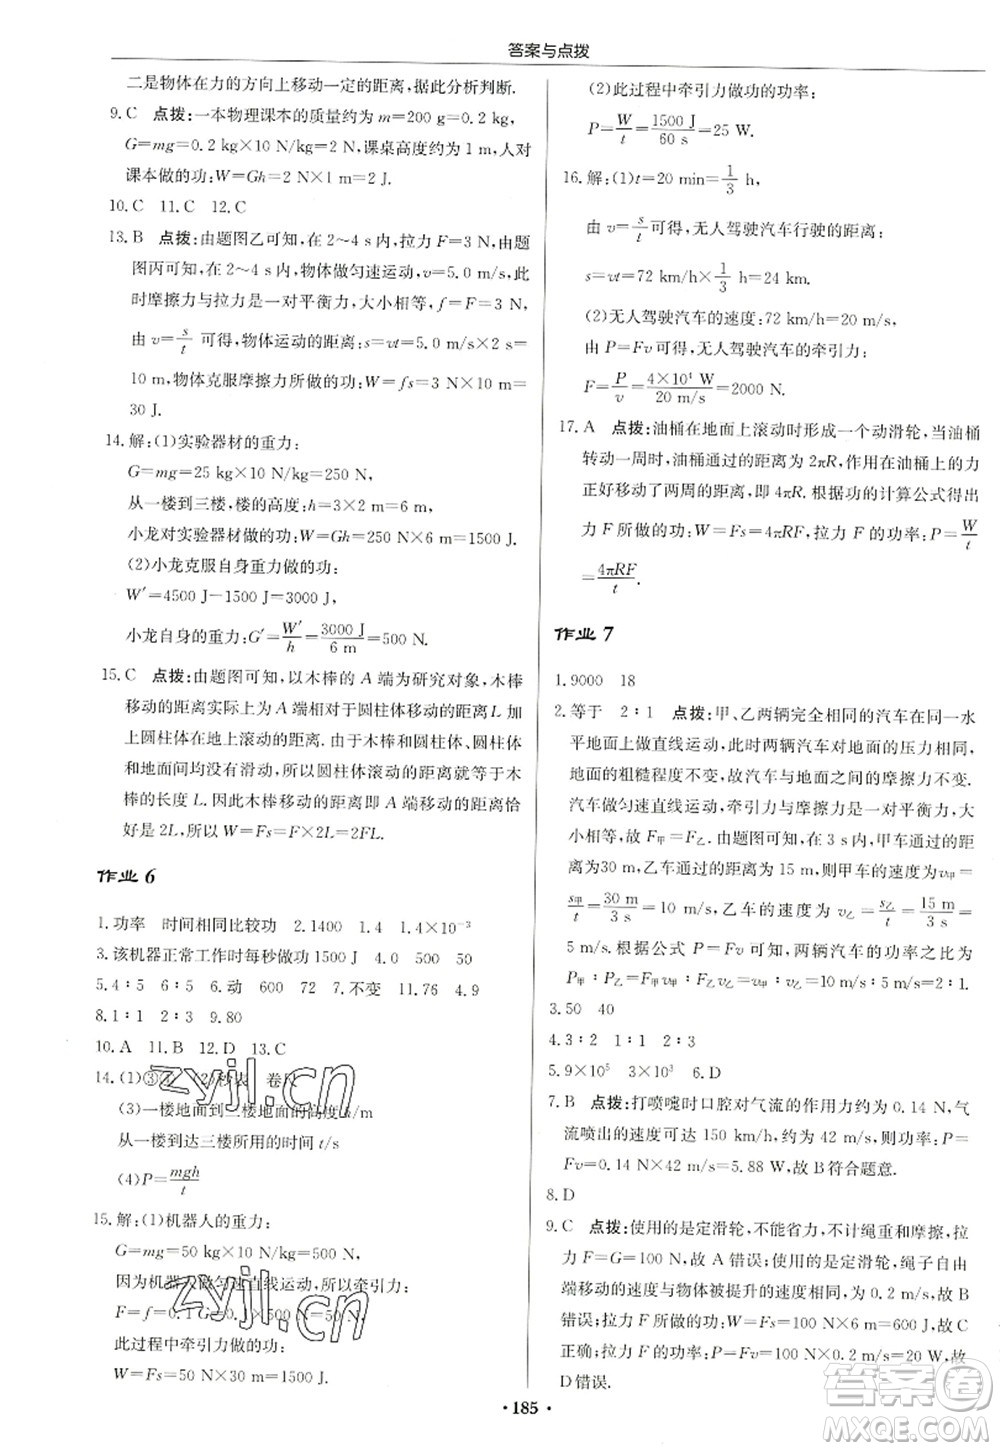 答案与点拨
二是物体在力的方向上移动一定的距离,据此分析判断.
9.C 点拨:一本物理课本的质量约为 m=200 g=0.2 kg,
G=mg=0.2 kg×10 N/kg=2 N,课桌高度约为 1 m,人对
课本做的功:W=Gh=2 N×1 m=2 J.
10.C 11.C 12.C
13.B 点拨:由题图乙可知,在 2~4 s 内,拉力 F=3 N,由题
图丙可知,在 2~4 s 内,物体做匀速运动,v=5.0 m/s,此
时摩擦力与拉力是一对平衡力,大小相等,f=F=3 N,
由 v=s/t 可得,物体运动的距离:s=vt=5.0 m/s×2 s=
10 m,物体克服摩擦力所做的功:W=fs=3 N×10 m=
30 J.
14.解:(1)实验器材的重力:
G=mg=25 kg×10 N/kg=250 N,
从一楼到三楼,楼的高度:h=3×2 m=6 m,
小龙对实验器材做的功:W=Gh=250 N×6 m=1500 J.
(2)小龙克服自身重力做的功:
W′=4500 J-1500 J=3000 J,
小龙自身的重力:G′=W′/h=3000 J/6 m=500 N.
15.C 点拨:由题图可知,以木棒的 A 端为研究对象,木棒
移动的距离实际上为 A 端相对于圆柱体移动的距离 L 加
上圆柱体在地上滚动的距离.由于木棒与圆柱体、圆柱体
和地面间均没有滑动,所以圆柱体滚动的距离就等于木
棒的长度 L.因此木棒移动的距离即 A 端移动的距离恰
好是 2L,所以 W=Fs=F×2L=2FL.
作业 6
1.功率 时间相同比较功 2.1400 1.4 1.4×10⁻³
3.该机器正常工作时每秒做功 1500 J 4.0 500 50
5.4∶5 6∶5 6.动 600 72 7.不变 21.6 4.9
8.1∶1 2∶3 9.80
10.A 11.B 12.D 13.C
14.(1)③④ (2)秒表 卷尺
(3)一楼地面到三楼地面的高度h/m
从一楼到达三楼所用的时间 t/s
(4)P=mgh/t
15.解:(1)机器人的重力:
G=mg=50 kg×10 N/kg=500 N,
因为机器人做匀速直线运动,所以牵引力:
F=f=0.1G=0.1×500 N=50 N,
此过程中牵引力做的功:
W=Fs=50 N×30 m=1500 J.
(2)此过程中牵引力做功的功率:
P=W/t=1500 J/60 s=25 W.
16.解:(1)t=20 min=1/3 h,
由 v=s/t 可得,无人驾驶汽车行驶的距离:
s=vt=72 km/h×1/3 h=24 km.
(2)无人驾驶汽车的速度:72 km/h=20 m/s,
由 P=Fv 可得,无人驾驶汽车的牵引力:
F=P/v=4×10⁴ W/20 m/s=2000 N.
17.A 点拨:油桶在地面上滚动时形成一个动滑轮,当油桶
转动一周时,油桶通过的距离为 2πR,作用在油桶上的力
正好移动了两周的距离,即 4πR.根据功的计算公式得出
力 F 所做的功:W=Fs=4πRF,拉力 F 的功率:P=W/t
=4πRF/t.
作业 7
1.9000 18
2.等于 2∶1 点拨:甲、乙两辆完全相同的汽车在同一水
平地面上做直线运动,此时两辆汽车对地面的压力相同,
地面的粗糙程度不变,故汽车与地面的摩擦力不变.
汽车做匀速直线运动,牵引力与摩擦力是一对平衡力,大
小相等,故 F甲=F乙.由题图可知,在 3 s 内,甲车通过的距
离为30 m,乙车通过的距离为 15 m,则甲车的速度为v甲=
s甲/t=30 m/3 s=10 m/s,乙车的速度 v乙=s乙/t=15 m/3 s=
5 m/s.根据公式 P=Fv 可知,两辆汽车的功率之比为
P甲∶P乙=F甲v甲∶F乙v乙=v甲∶v乙=10 m/s∶5 m/s=2∶1.
3.50 40
4.3∶2 1∶1 2∶3
5.9×10⁵ 3×10³ 6.D
7.B 点拨:打喷嚏时口腔对气流的作用力约为 0.14 N,气
流喷出的速度可达 150 km/h,约为 42 m/s,则功率:P=
Fv=0.14 N×42 m/s=5.88 W,故 B 符合题意.
8.D
9.C 点拨:使用的是定滑轮,不能省力,不计绳重和摩擦,拉
力 F=G=100 N,故 A 错误;使用的是定滑轮,绳子自由
端移动的速度与物体被提升的速度相等,为 0.2 m/s,故 B
错误;拉力 F 所做的功:W=Fs=100 N×6 m=600 J,故 C
正确;拉力 F 的功率:P=Fv=100 N×0.2 m/s=20 W,故
D 错误.
·185·
zyjl.cn
zyjl.cn
答案圈
MXQE.COM